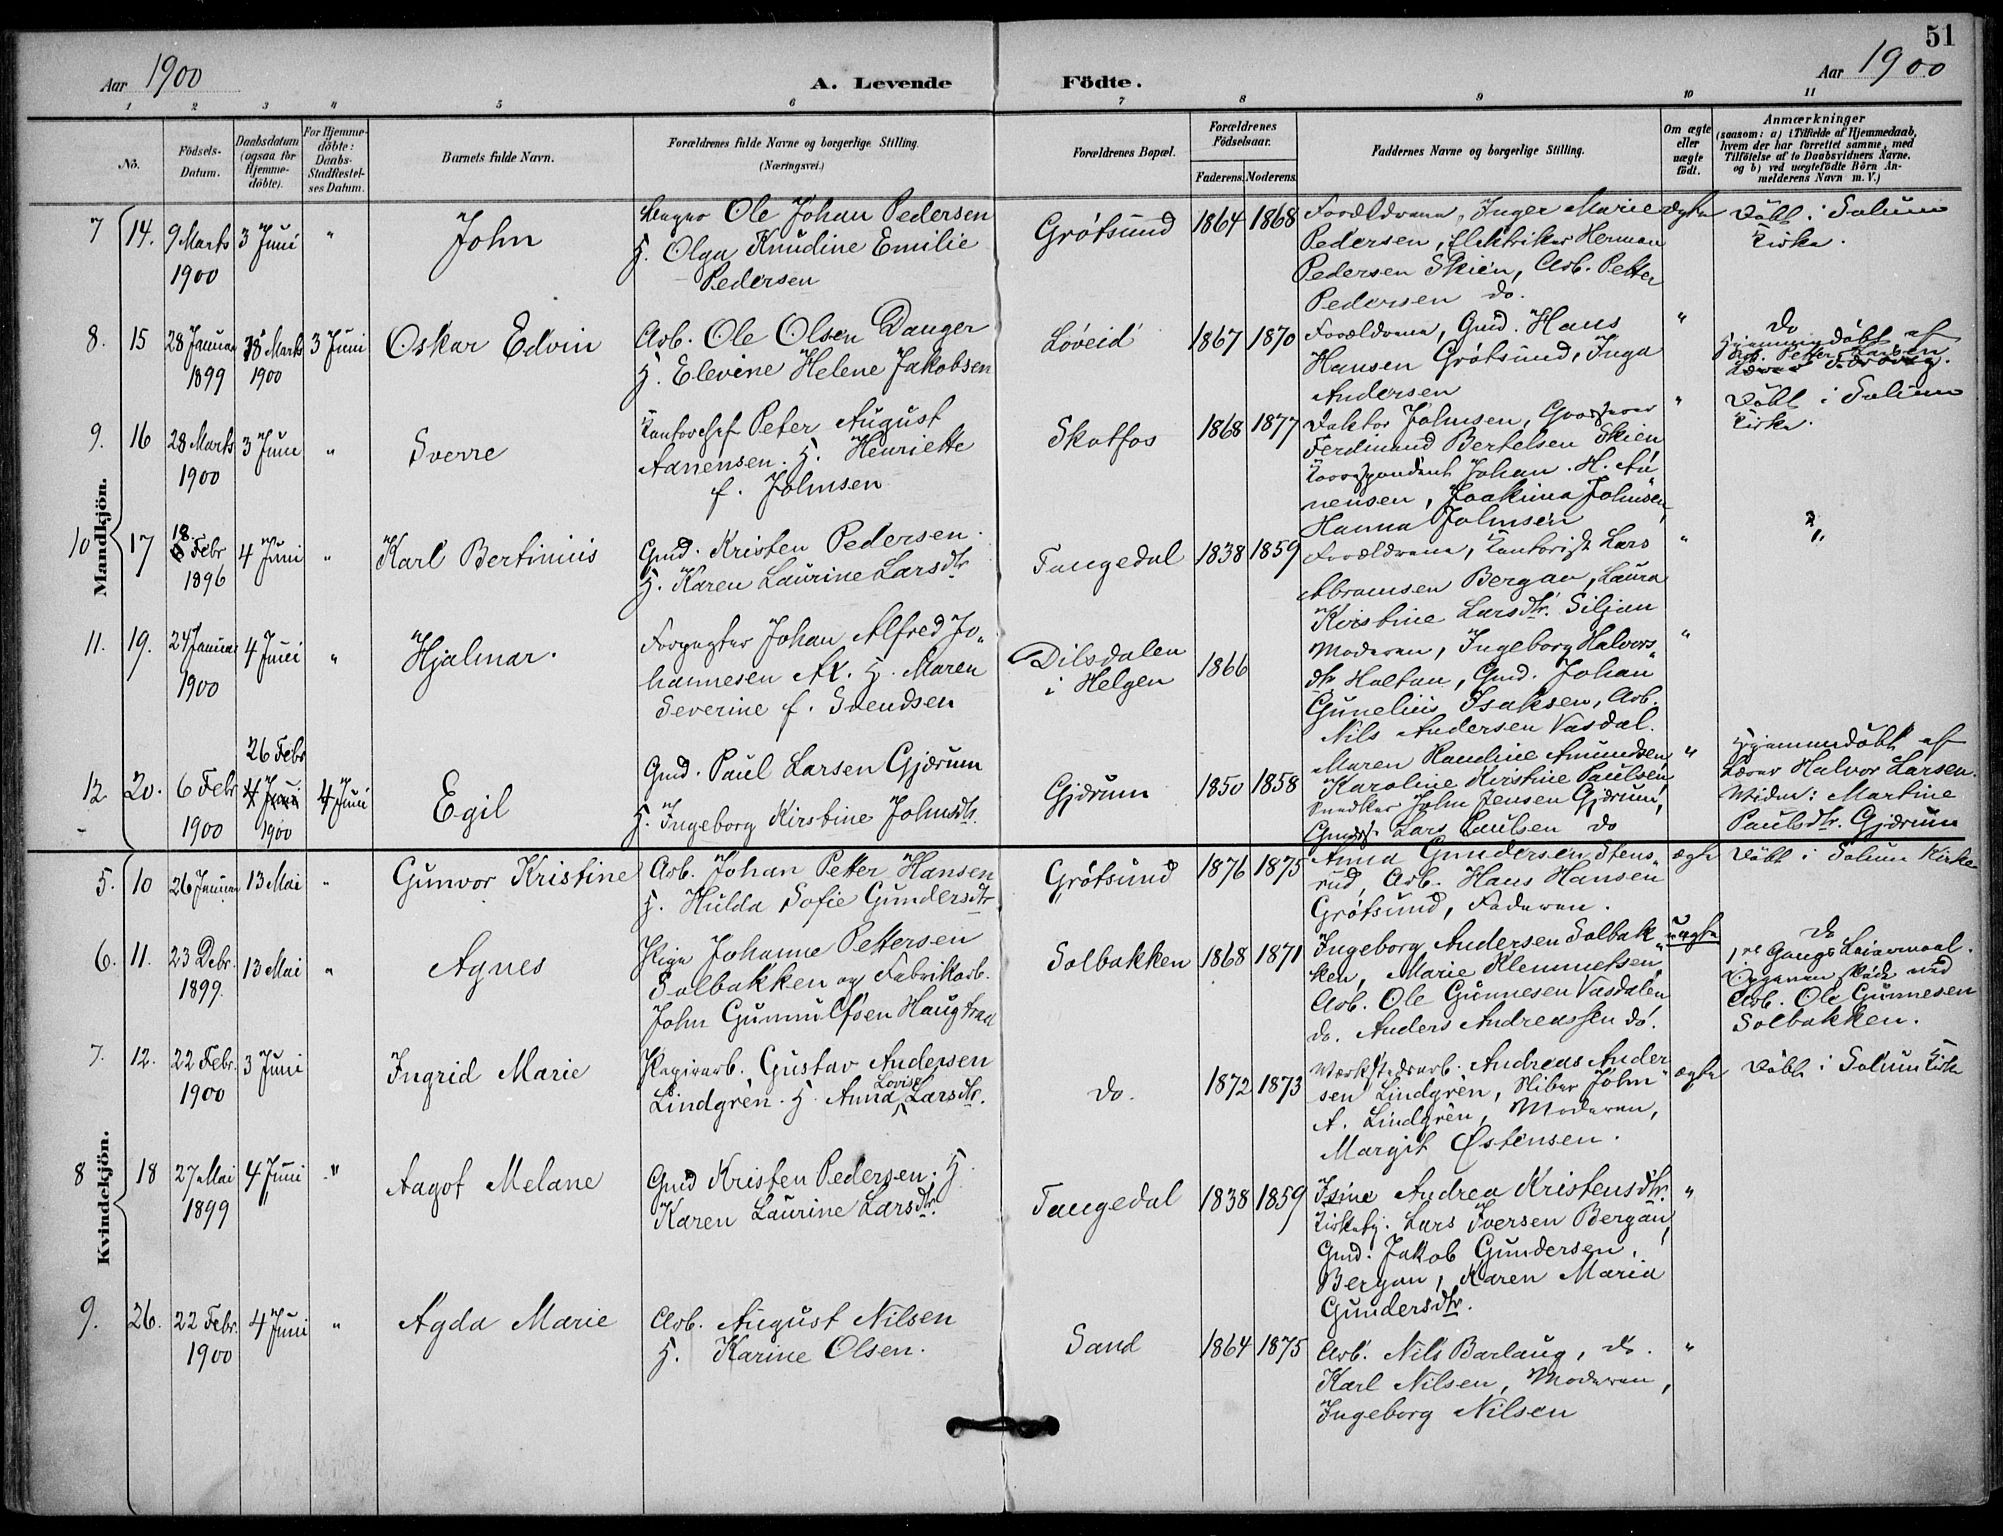 51
Aar 1900
A. Levende Födte.
Aar 1900
1 2 3 4 5 6 7 8 9 10 11
No.
Födsels-
Datum.
Daabsdatum
(ogsaa for
Hjemme-
döbte).
For Hjemme-
döbte:
Daabs-
Stadfæstel-
ses Datum.
Barnets fulde Navn.
Forældrenes fulde Navne og borgerlige Stilling.
(Næringsvei.)
Forældrenes Bopæl.
Forældrenes
Födselsaar.
Faderens. Moderens.
Faddernes Navne og borgerlige Stilling.
Om ægte
eller
uægte
födt.
Anmærkninger
(saasom: a) i Tilfælde af Hjemmedaab,
hvem der har forrettet samme, med
Tilföielse af to Daabsvidners Navne,
og b) ved uægtefödte Börn An-
melderens Navn m. V.)
Mandkjön.
7 14. 9 Marts 3 Juni "
1900
John
Ole Johan Pedersen
H. Olga Knudine Emilie
Pedersen
Grótsund 1864 1868
Forældrene, Inger Marie
Pedersen, Elektriker Herman
Pedersen Skien, Arb. Petter
Pedersen do.
ægte
Döbt i Solum
Kirke.
8. 15 28 Januar 18 Marts 3 Juni
1899 1900
Oskar Edvin
Arb. Ole Olsen Danger
H. Elevine Helene Jakobsen
Løveid 1867 1870
Forældrene, Gmd. Hans
Hansen Grótsund, Inga
Andersen
"
Do
Hjemmedöbt af
Arb. Petter Larsen
9. 16 28 Marts 3 Juni "
1900
Sverre
Kontorchef Peter August
Aanensen. H. Henriette
f. Johnsen
Skotfos 1868 1877
Faktor Johnsen, Grosserer
Ferdinand Bertelsen Skien
Korrespondent Johan. H. Aa
nensen, Joakima Johnsen,
Hanna Johnsen
"
Döbt i Solum
Kirke.
10 17 18 Febr 4 Juni "
1896
Karl Bertinius
Gmd. Kristen Pedersen.
H. Karen Laurine Larsdtr
Tangedal 1838 1859
Forældrene, Kontorist Lars
Abramsen Bergan, Laura
Kirstine Larsdtr. Siljan
" "
11. 19. 24 Januar 4 Juni "
1900
Hjalmar.
Forpagter Johan Alfred Jo-
hannesen H. Maren
Severine f. Svendsen
Dilsdalen
i Helgen
1866
Moderen, Ingeborg Halvors-
dtr Holtan, Gmd. Johan
Gunelius Isaksen, Arb.
Nils Andersen Vasdal.
"
12 20. 6 Febr 26 Febr 4 Juni
1900 4 Juni
1900
Egil
Gmd. Paul Larsen Gjærum
H. Ingeborg Kirstine Johnsdtr.
Gjærum 1850 1858
Maren Randine Amundsen
Karoline Kirstine Paulsen,
Snedker John Jensen Gjærum,
Lars Paulsen do
"
Hjemmedöbt af
Lærer Halvor Larsen.
Vidner: Martine
Paulsdtr. Gjærum
Kvindekjön.
5. 10 26 Januar 13 Mai "
Gunvor Kristine
Arb. Johan Petter Hansen
H. Hulda Sofie Gundersdtr
Grótsund 1876 1875
Anna Gundersen Stens-
rud, Arb. Hans Hansen
Grótsund, Faderen.
ægte
Döbt i Solum Kirke
6. 11. 23 Debr. 13 Mai "
1899.
Agnes
Pige Johanne Pettersen
Solbakken og Fabrikarb.
John Gunnulfsen Haugtraa
Solbakken 1868 1871
Ingeborg Andersen Solbak-
ken, Marie Klemmetsen,
Arb. Ole Gunnesen Vasdalen
do. Anders Andreassen do.
uægte
Do
1ste Gangs Leiermaal.
Opgaven skede ved
Arb. Ole Gunnesen
Solbakken.
7. 12. 22 Febr. 3 Juni
1900
Ingrid Marie
Papirarb. Gustav Andersen
Lindgrèn. H. Anna Lovise Larsdtr.
Do. 1872 1873
Værkstedsarb. Andreas Ander-
sen Lindgrèn, Sliber John
A. Lindgrèn, Moderen,
Margit Østensen.
ægte
Döbt i Solum Kirke
8 18 27 Mai 4 Juni "
1899
Aagot Melane
Gmd Kristen Pedersen; H.
Karen Laurine Larsdtr.
Tangedal 1838 1859
Isine Andrea Kristensdtr.
Lars Iversen Bergan,
Gmd. Jakob Gundersen,
Bergan, Karen Maria
Gundersdtr.
"
9. 26. 22 Febr. 4 Juni "
1900
Agda Marie
Arb. August Nilsen
H. Karine Olsen.
Sand 1864 1875
Arb. Nils Barlaug, do.
Karl Nilsen, Moderen,
Ingeborg Nilsen
"